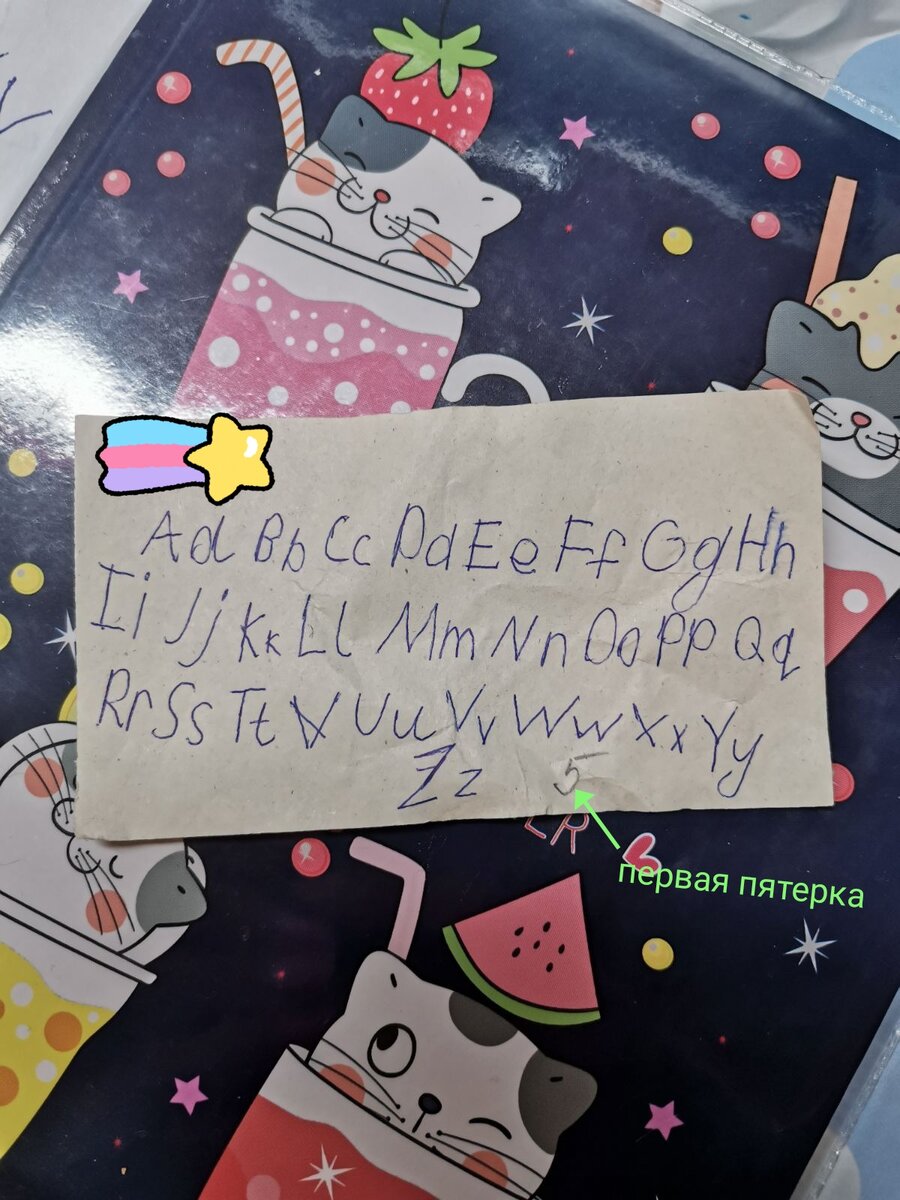 Aa Bb Cc Dd Ee Ff Gg Hh
Ii Jj Kk Ll Mm Nn Oo Pp Qq
Rr Ss Tt V Uu Vv Ww Xx Yy
Zz 5
ER
первая пятерка